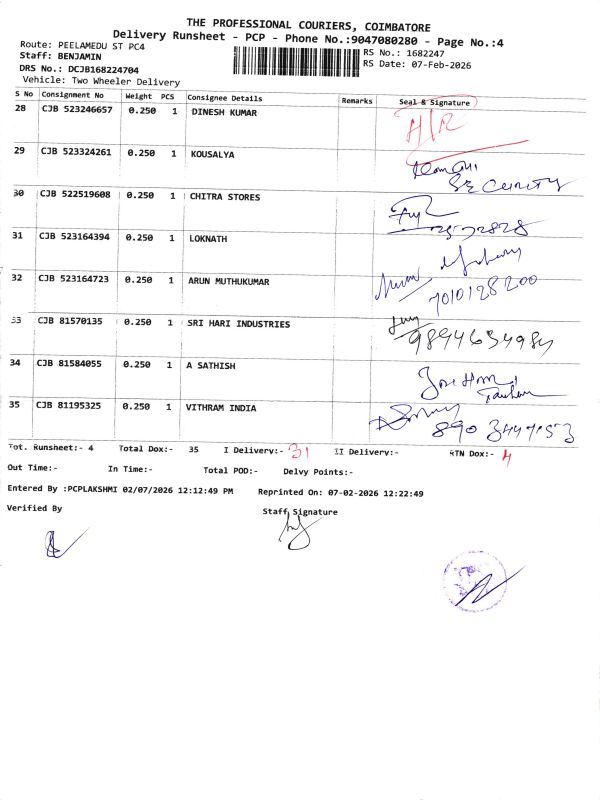 THE PROFESSIONAL COURIERS, COIMBATORE
Delivery Runsheet - PCP - Phone No.:9047080280 - Page No.:4
Route: PEELAMEDU ST PC4
Staff: BENJAMIN
DRS No.: DCJB168224704
Vehicle: Two Wheeler Delivery
RS No.: 1682247
RS Date: 07-Feb-2026
S No Consignment No Weight PCS Consignee Details Remarks Seal & Signature
28 CJB 523246657 0.250 1 DINESH KUMAR
29 CJB 523324261 0.250 1 KOUSALYA
SECURITY
30 CJB 522519608 0.250 1 CHITRA STORES
31 CJB 523164394 0.250 1 LOKNATH
32 CJB 523164723 0.250 1 ARUN MUTHUKUMAR
7010128200
33 CJB 81570135 0.250 1 SRI HARI INDUSTRIES
9894634984
34 CJB 81584055 0.250 1 A SATHISH
35 CJB 81195325 0.250 1 VITHRAM INDIA
890 3447153
Tot. Runsheet:- 4 Total Dox:- 35 I Delivery:- 31 II Delivery:- RTN Dox:- 4
Out Time:- In Time:- Total POD:- Delvy Points:-
Entered By :PCPLAKSHMI 02/07/2026 12:12:49 PM Reprinted On: 07-02-2026 12:22:49
Verified By Staff Signature